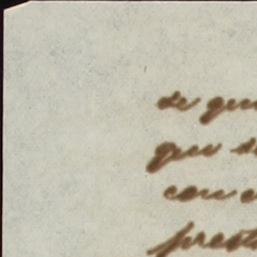 de que
que s
con e
prest